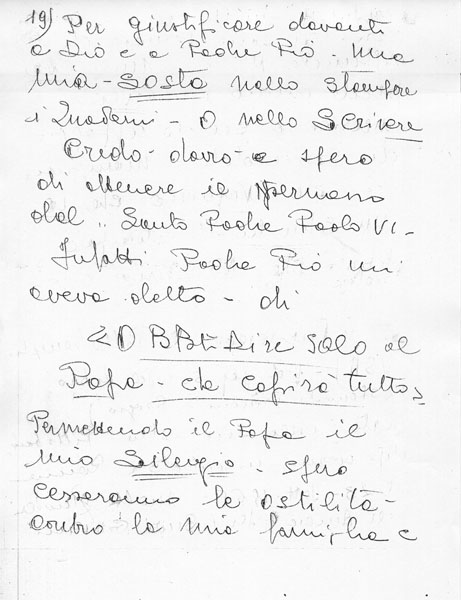 19) Per giustificare davanti
a Dio e a Padre Pio - una
mia - sosta nello stampare
i Quaderni - o nello Scrivere
Credo - dovrò - e spero
di ottenere il permesso
dal .. Santo Padre Paolo VI -
Infatti Padre Pio mi
aveva detto - di
<< OBBEDire solo al
Papa - che capirà tutto >>
Permettendo il Papa il
mio Silenzio - spero
Cesseranno le ostilità -
contro la mia famiglia e